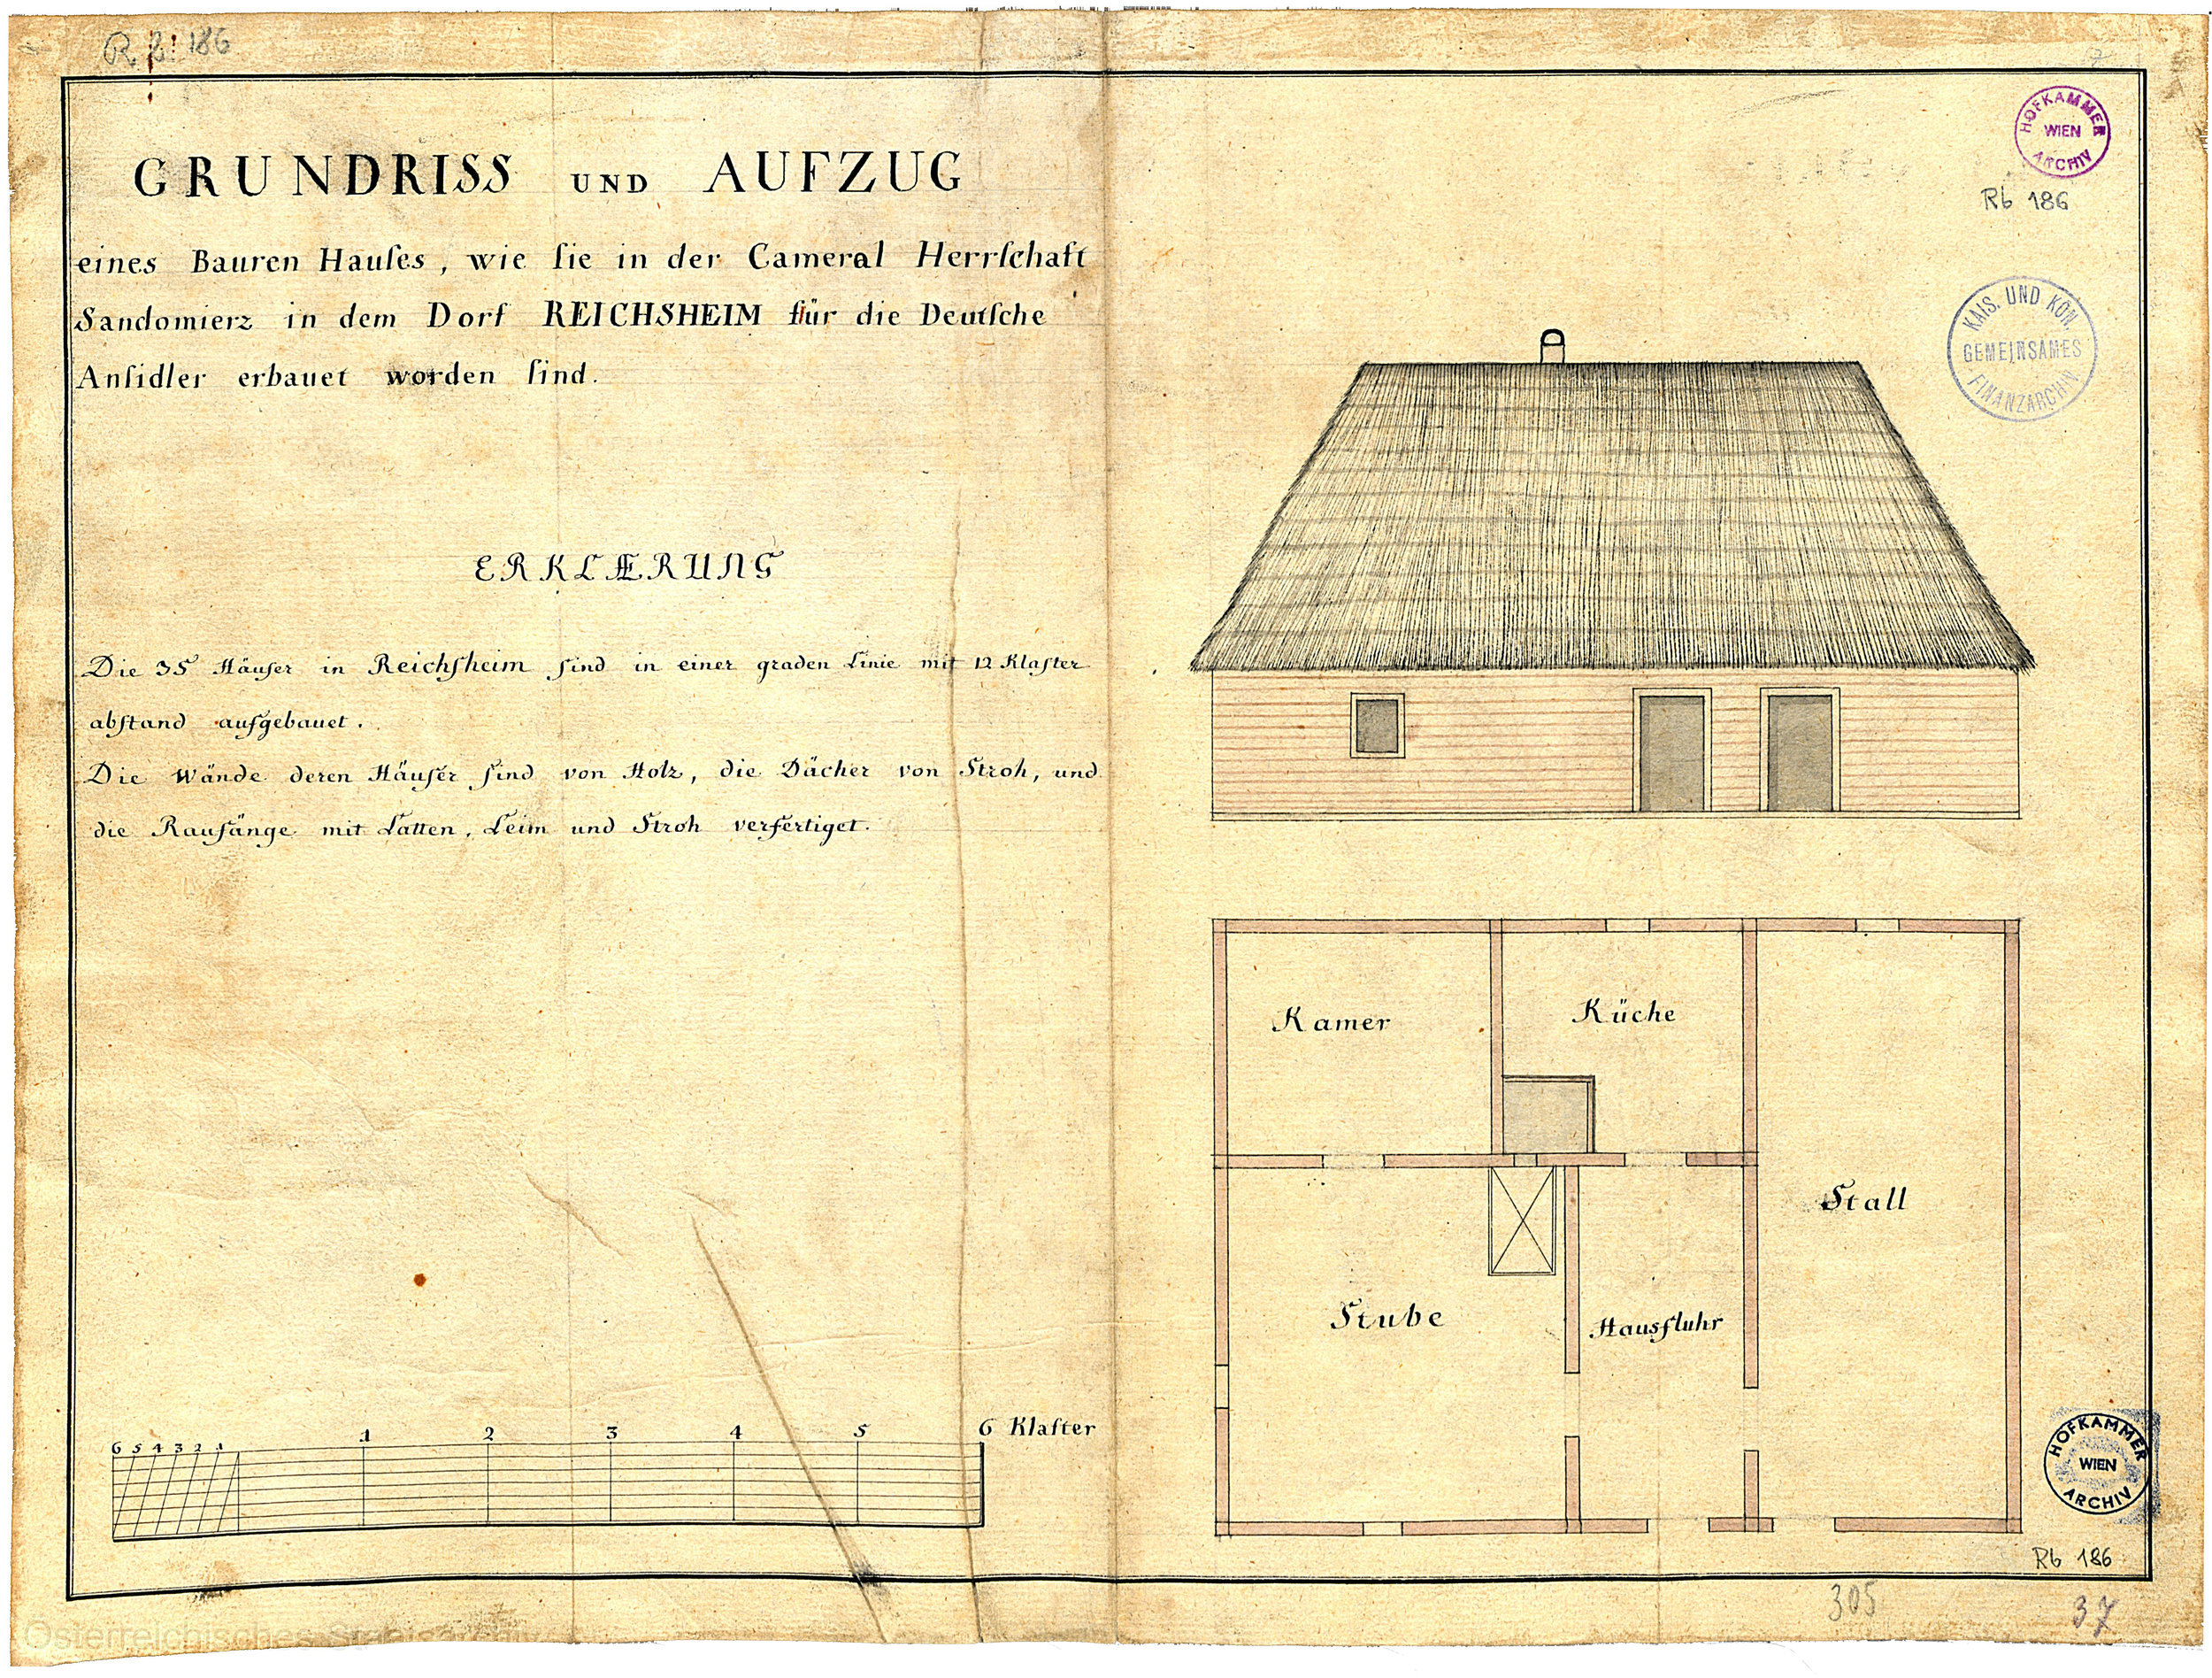 R b 186
7
GRUNDRISS UND AUFZUG
eines Bauren Hauſes, wie ſie in der Cameral Herrſchaft
Sandomierz in dem Dorf REICHSHEIM für die Deutſche
Anſidler erbauet worden ſind.
HOFKAMMER
WIEN
ARCHIV
Rb 186
KAIS. UND KÖN.
GEMEINSAMES
FINANZARCHIV
ERKLÆRUNG
Die 35 Häuſer in Reichſheim ſind in einer graden Linie mit 12 Klafter
abſtand aufgebauet.
Die Wände deren Häuſer ſind von Holz, die Dächer von Stroh, und
die Raufänge mit Latten, Leim und Stroh verfertiget.
Kamer
Küche
Stall
Stube
Hausfluhr
6 5 4 3 2 1 1 2 3 4 5 6 Klafter
HOFKAMMER
WIEN
ARCHIV
Rb 186
305
37
Österreichisches Staatsarchiv